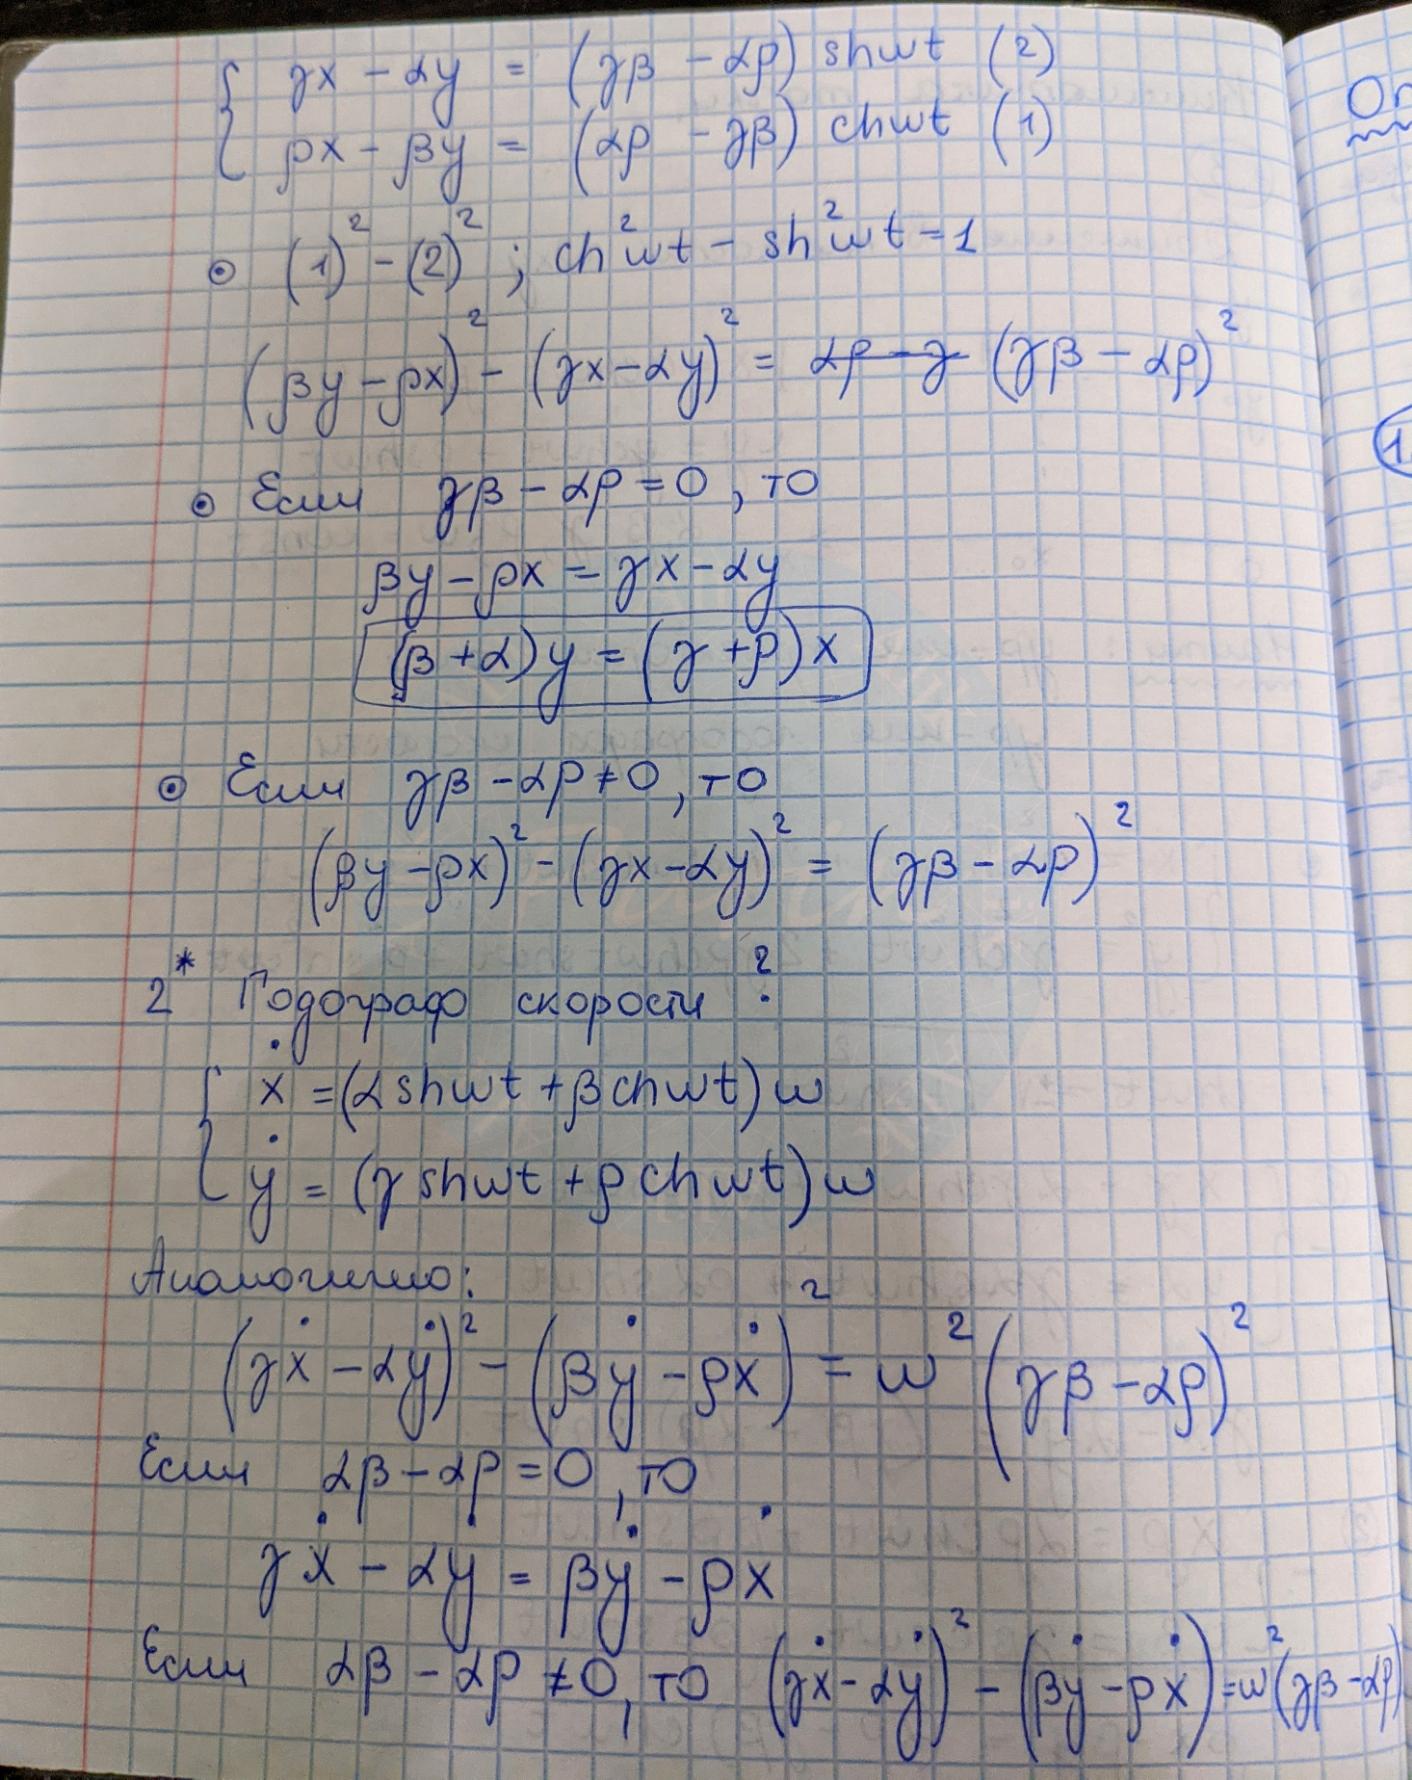 γx − αy = (γβ − αρ) shωt (2)
ρx − βy = (αρ − γβ) chωt (1)
(1)² − (2)² ; ch²ωt − sh²ωt = 1
(βy − ρx)² − (γx − αy)² = αρ − γ (γβ − αρ)²
Если γβ − αρ = 0, то
βy − ρx = γx − αy
(β + α) y = (γ + ρ) x
Если γβ − αρ ≠ 0, то
(βy − ρx)² − (γx − αy)² = (γβ − αρ)²
2* Годограф скорости ?
ẋ = (α shωt + β chωt) ω
ẏ = (γ shωt + ρ chωt) ω
Аналогично:
(γẋ − αẏ)² − (βẏ − ρẋ)² = ω² (γβ − αρ)²
Если αβ − αρ = 0, то
γẋ − αẏ = βẏ − ρẋ
Если αβ − αρ ≠ 0, то (γẋ − αẏ)² − (βẏ − ρẋ)² = ω² (γβ − αρ)
Оп
1.